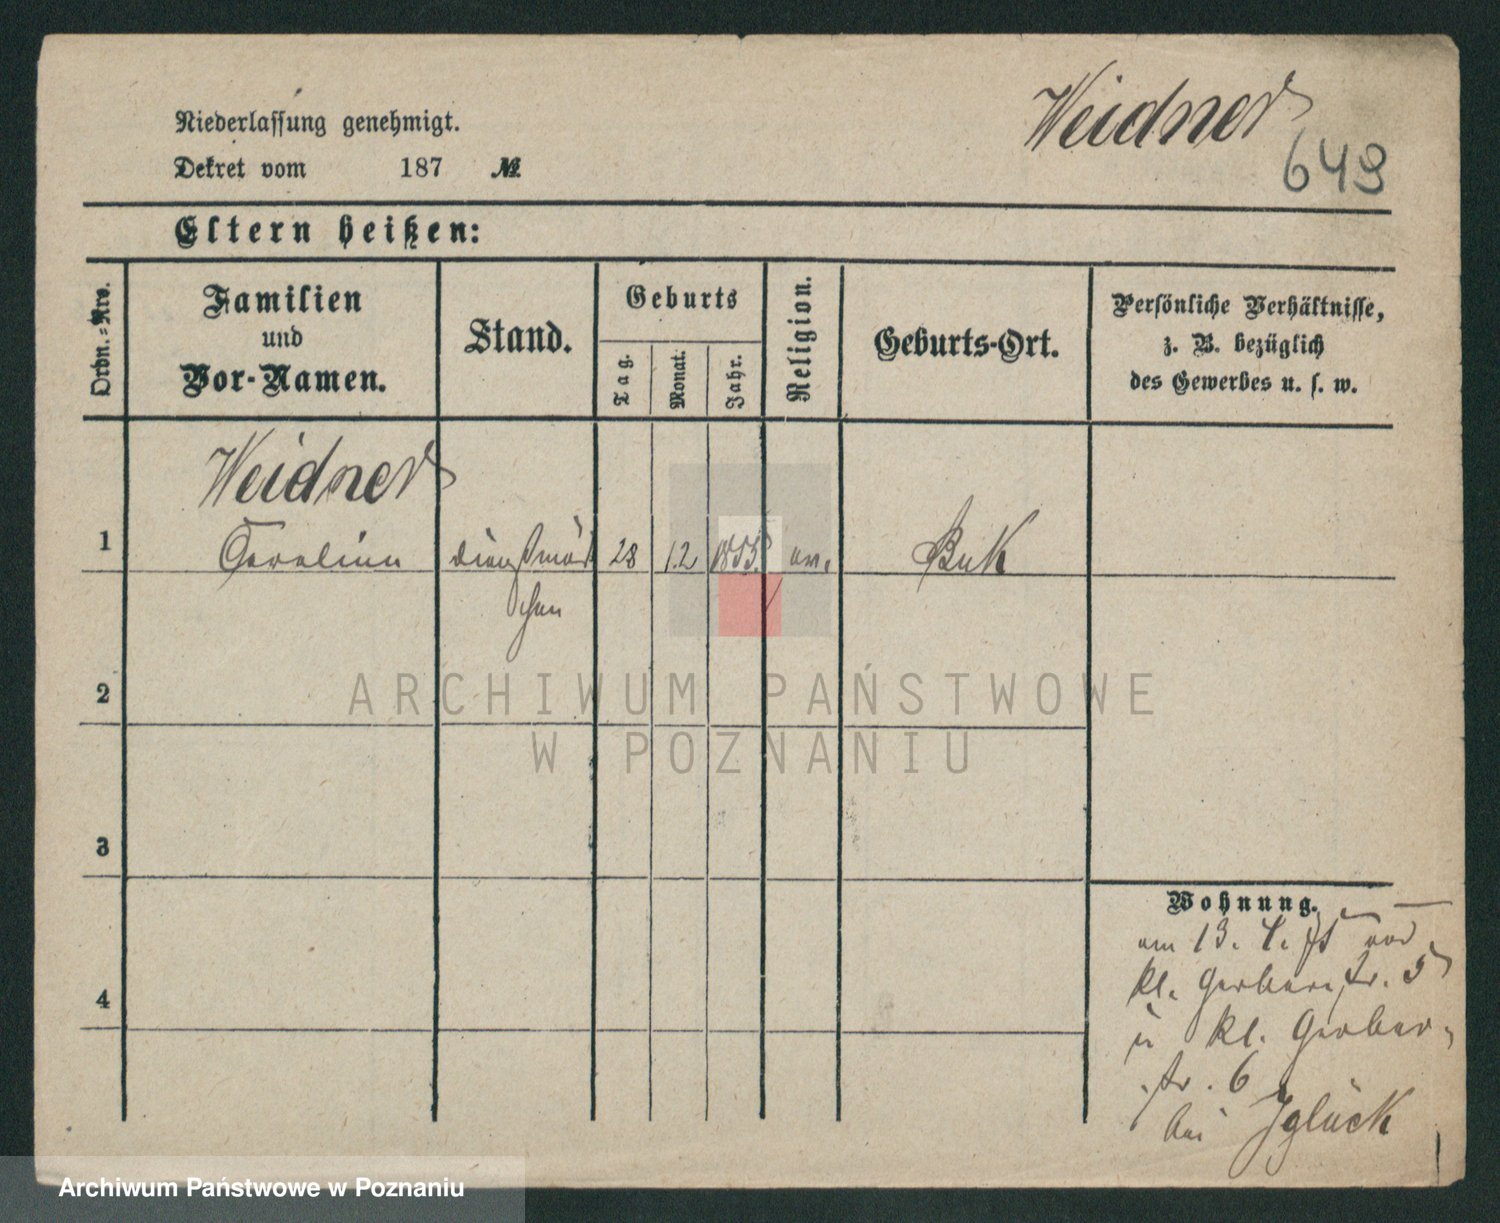 Weidner
649
Niederlassung genehmigt.
Dekret vom 187 №
Eltern heißen:
Ordn.-Nro.
Familien
und
Vor-Namen.
Stand.
Geburts
Tag.
Monat.
Jahr.
Religion.
Geburts-Ort.
Persönliche Verhältnisse,
z. B. bezüglich
des Gewerbes u. s. w.
Weidner
1 Carolina Dienstmäd 28 12 1853 ev. Buk
chen
2
ARCHIWUM PAŃSTWOWE
W POZNANIU
3
Wohnung.
am 13. 4. 75 von
kl. Gerberstr. 5
u kl. Gerber-
str. 6
bei Iglück
4
Archiwum Państwowe w Poznaniu